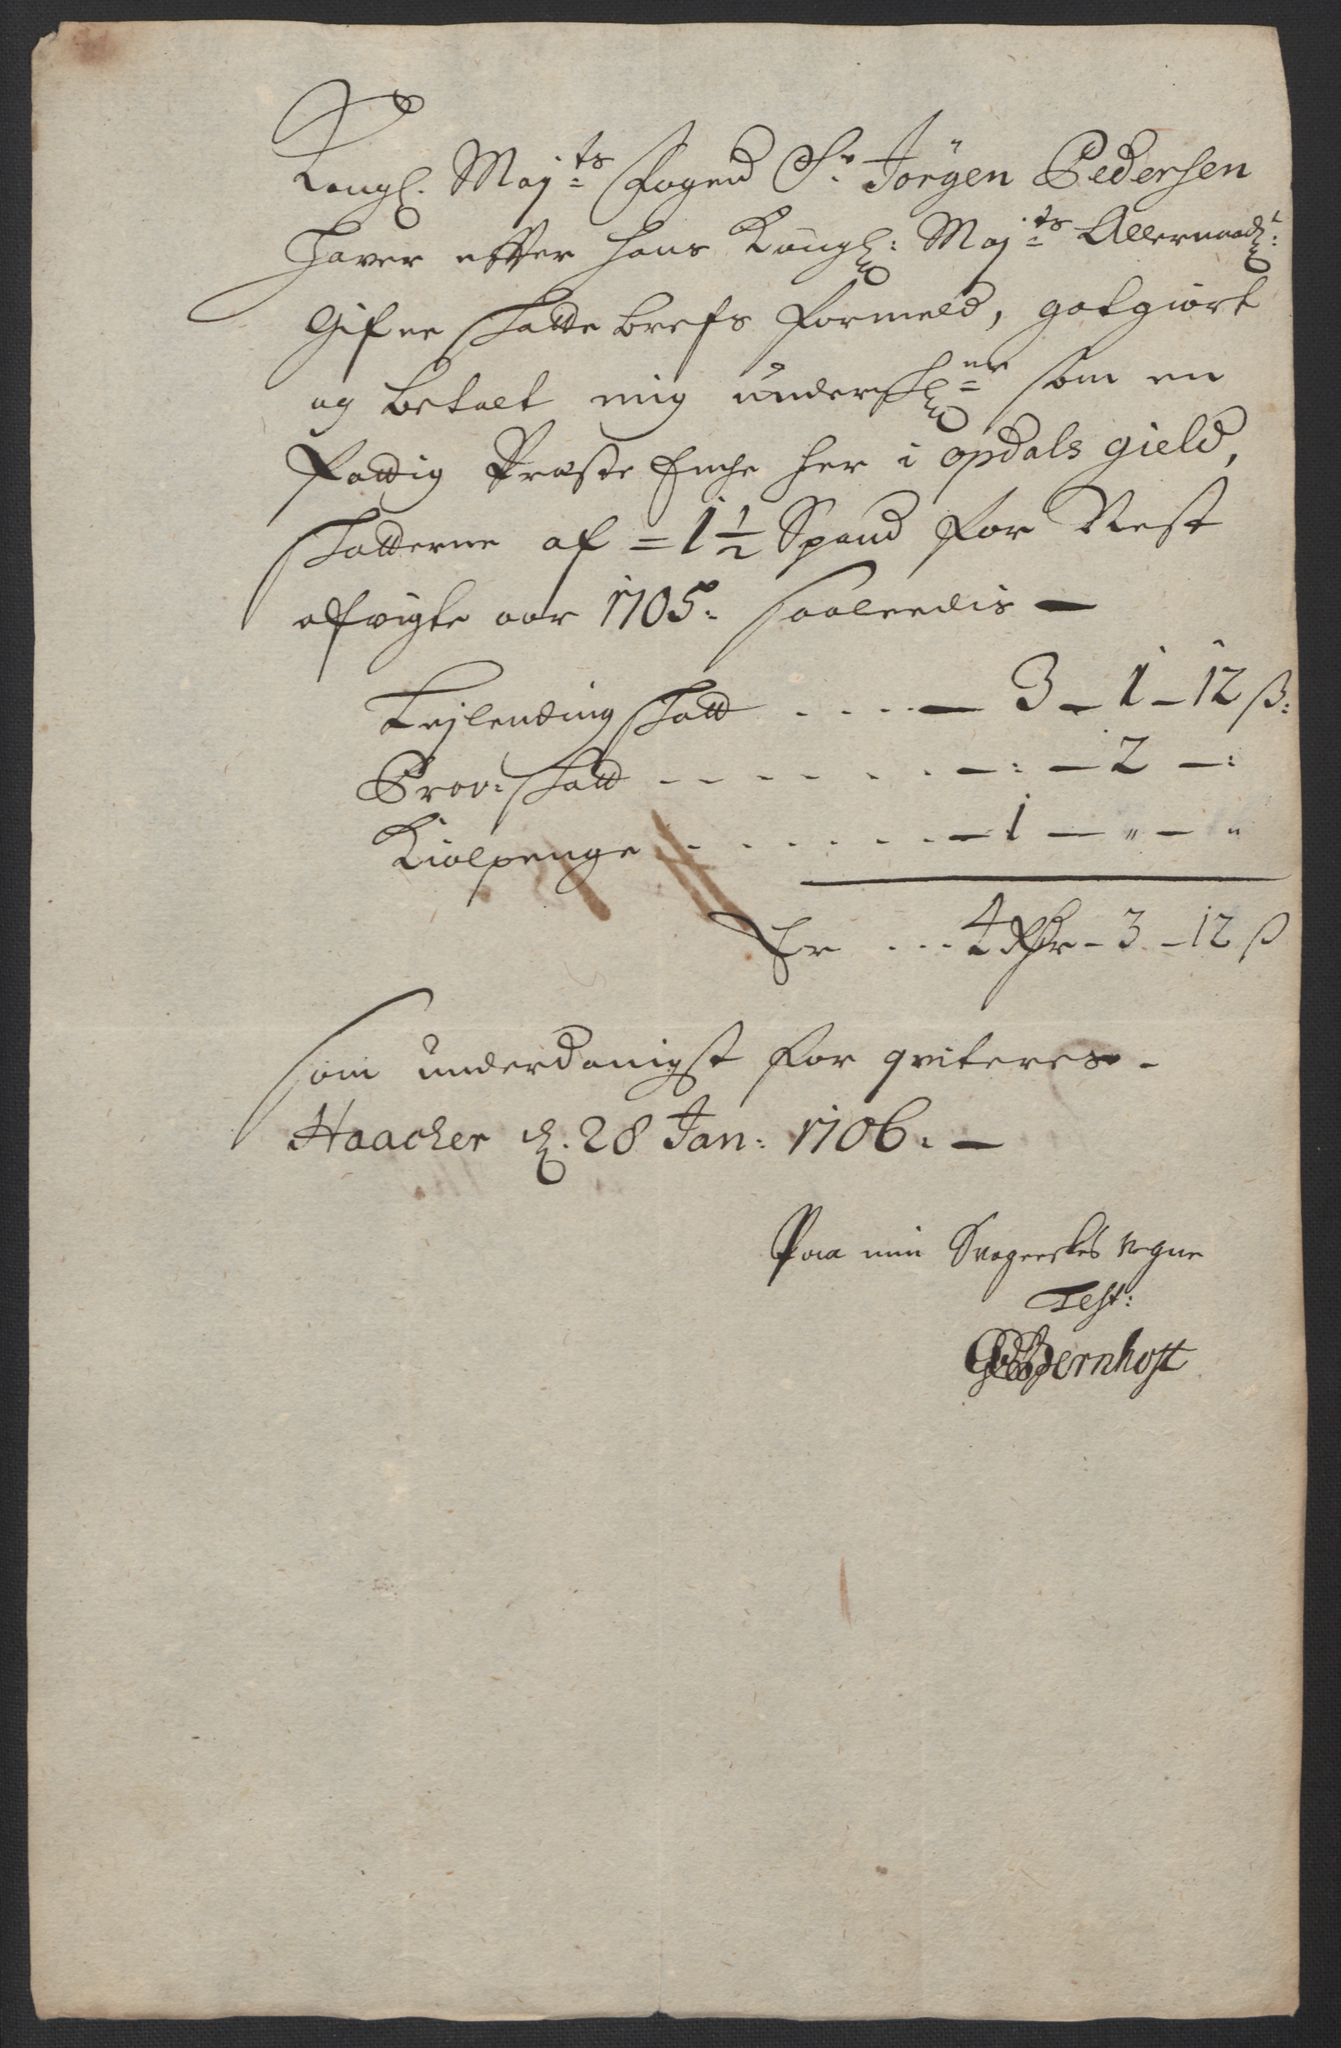 Kongl. Maj:ts Foged Sr. Jörgen Pedersen
Haver efter Hans Kongl: Maj:ts Allernaadl:
Gifne Skatte brefs Formeld, gotgiort
og betalt mig undersk:ner som en
Fattig Præste Enche her i opdals gield,
Skatterne af = 1 1/2 Spand for Nest
afvigte aar 1705. saaleedis —
Lejlending Skatt . . . . — 3 – 1 – 12 ß:
Prov: Skatt - - - - - - - : – 2 – :
Kiolpenge - - - - - - – 1 – " – "
Er . . . 4 Rdr – 3 – 12 ß
som underdanigst for qviteres.
Haacker d. 28 Jan: 1706. —
Paa min Svogerskes vegne
Test:
Bernhoft